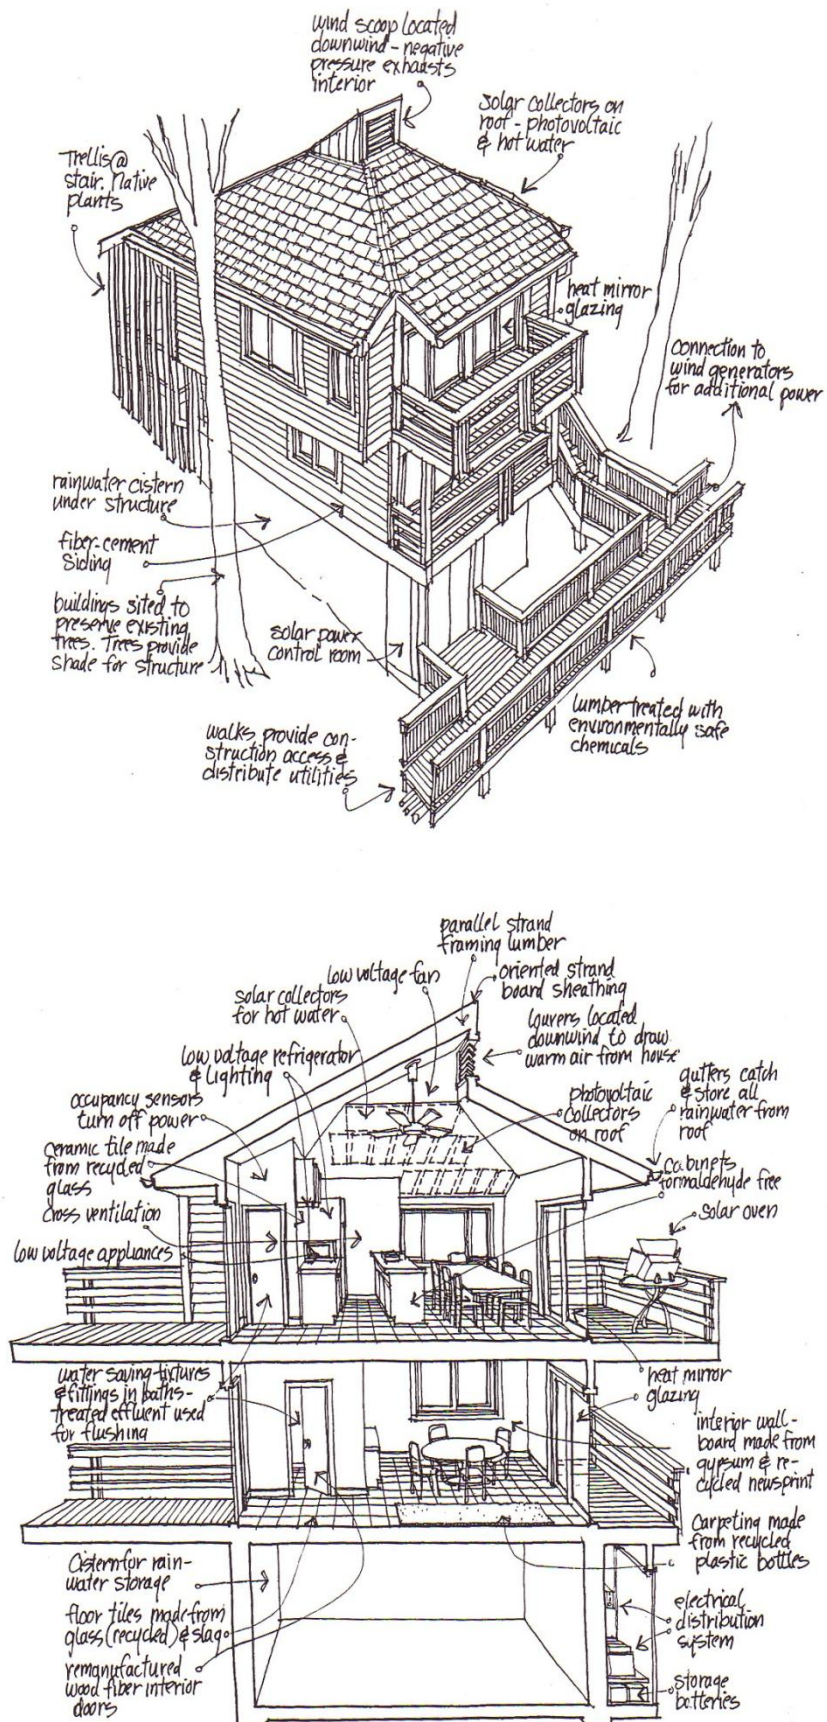 wind scoop located
downwind - negative
pressure exhausts
interior
solar collectors on
roof - photovoltaic
& hot water
Trellis @
stair. Native
plants
heat mirror
glazing
connection to
wind generators
for additional power
rainwater cistern
under structure
fiber-cement
siding
buildings sited to
preserve existing
trees. Trees provide
shade for structure
solar power
control room
lumber treated with
environmentally safe
chemicals
walks provide con-
struction access &
distribute utilities
parallel strand
framing lumber
low voltage fan
oriented strand
board sheathing
solar collectors
for hot water
louvers located
downwind to draw
warm air from house
low voltage refrigerator
& lighting
gutters catch
& store all
rainwater from
roof
occupancy sensors
turn off power
photovoltaic
collectors
on roof
ceramic tile made
from recycled
glass
cabinets
formaldehyde free
cross ventilation
solar oven
low voltage appliances
water saving fixtures
& fittings in baths-
treated effluent used
for flushing
heat mirror
glazing
interior wall-
board made from
gypsum & re-
cycled newsprint
Carpeting made
from recycled
plastic bottles
Cistern for rain-
water storage
floor tiles made from
glass (recycled) & slag
electrical
distribution
system
remanufactured
wood fiber interior
doors
storage
batteries